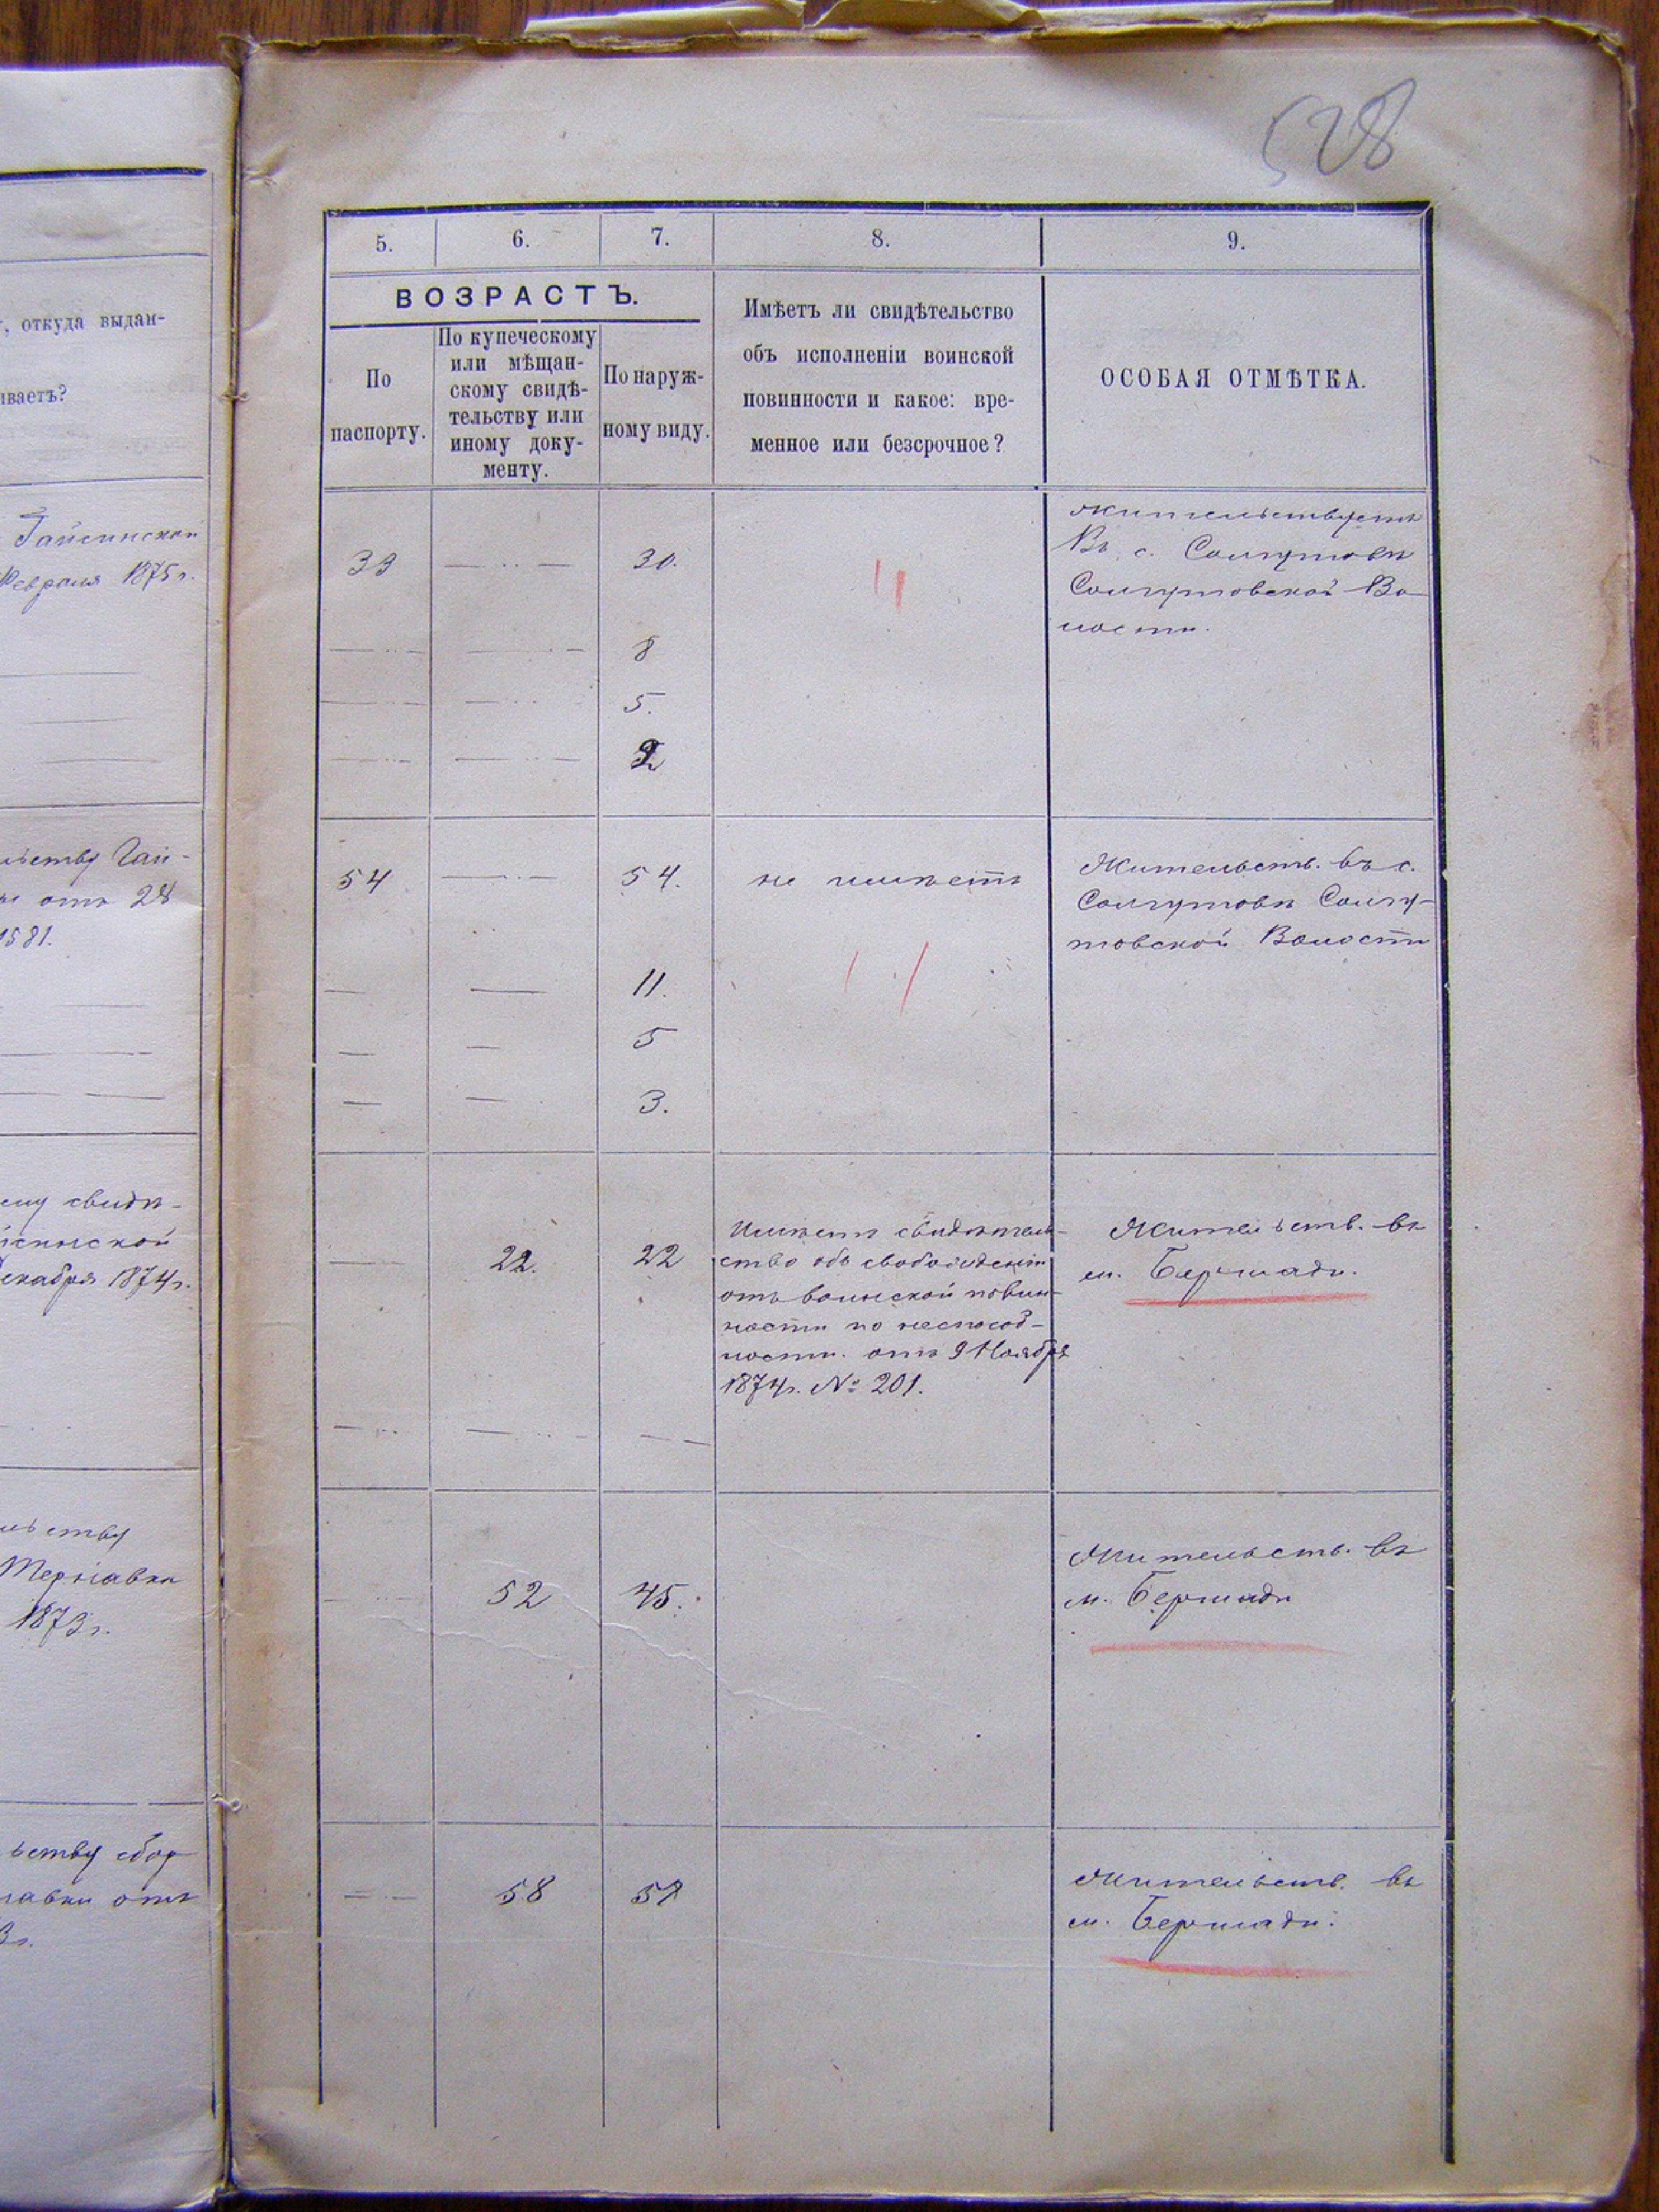 528
, откуда выдан-
иваетъ?
Гайсинской
Февраля 1875 г.
льству Гай-
отъ 28
1581.
ому свидѣ-
Декабря 1874 г.
льству
Терлавка
1873 г.
ьству сбор
лавки отъ
3 г.
5. 6. 7. 8. 9.
ВОЗРАСТЪ.
По
паспорту.
По купеческому
или мѣщан-
скому свидѣ-
тельству или
иному доку-
менту.
По наруж-
ному виду.
Имѣетъ ли свидѣтельство
объ исполненіи воинской
повинности и какое: вре-
менное или безсрочное?
ОСОБАЯ ОТМѢТКА.
33 — 30.
Жительствуетъ
Въ с. Солгутовѣ
Солгутовской Во-
лости.
— — 8
— — 5.
— — 2
54 — 54. не имѣетъ
Жительств. въ с.
Солгутовѣ Солгу-
товской Волости
— — 11.
— — 5
— — 3.
— 22. 22
Имѣетъ свидѣтель-
ство объ свобожденіи
отъ воинской повин-
ности по неспособ-
ности. отъ 9 Ноября
1874 г. № 201.
Жительств. въ
м. Бершади.
— — —
— 52 45.
Жительств. въ
м. Бершади
— 58 58
Жительств. въ
м. Бершади.